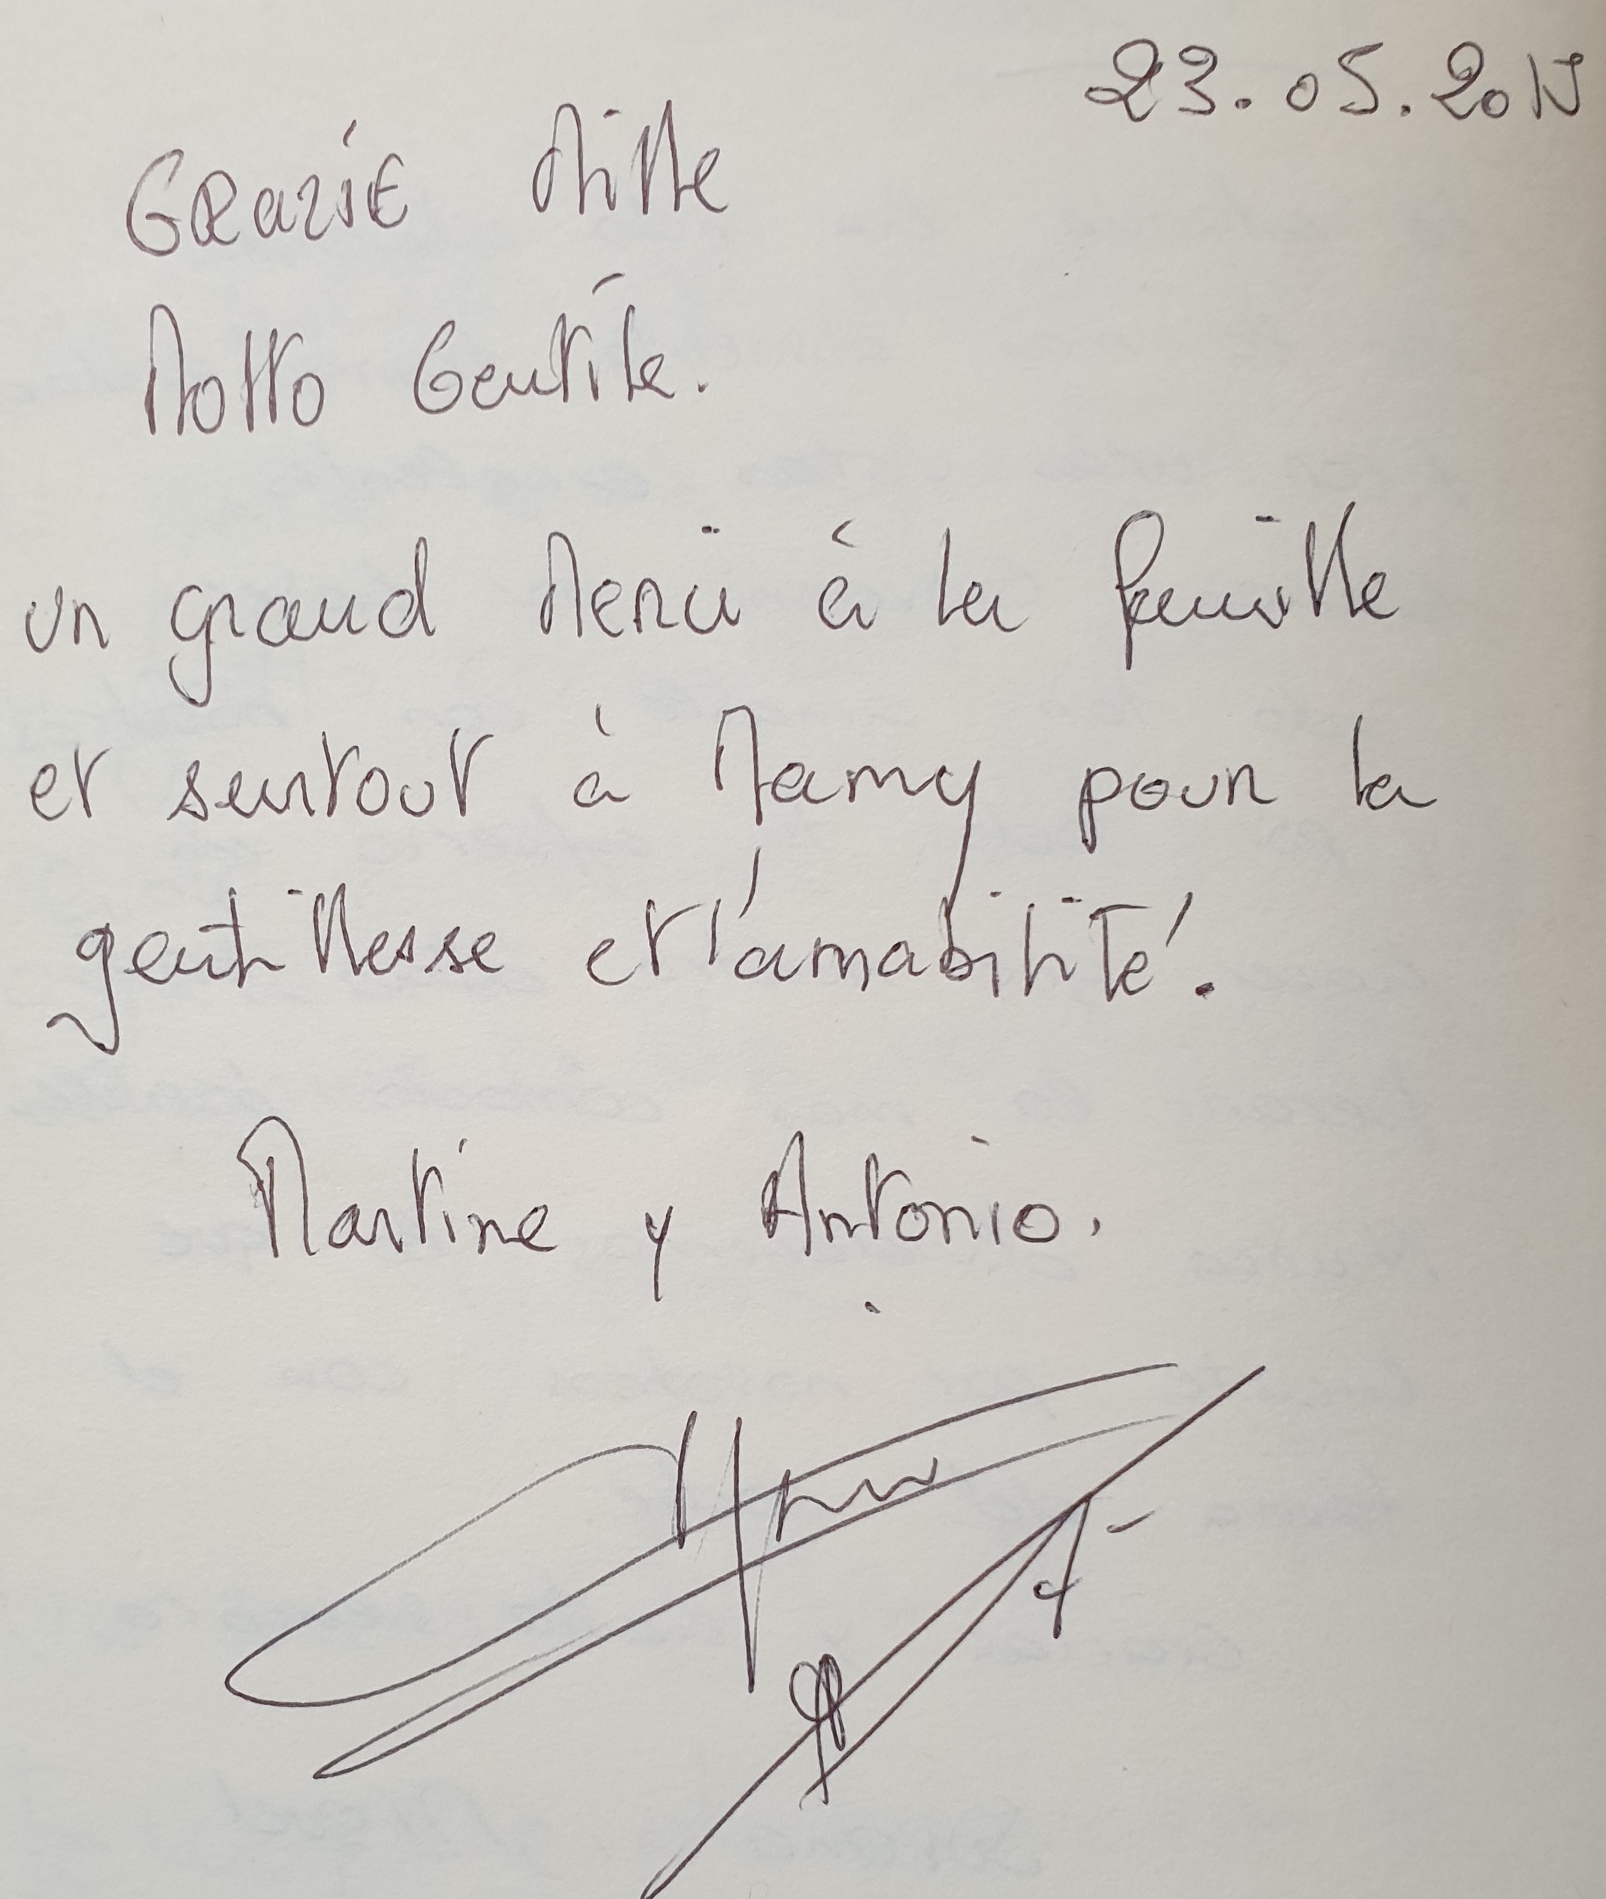 23.05.2015
Grazie Mille
Molto Gentile.
un grand Merci à la famille
et surtout à Mamy pour la
gentillesse et l'amabilité.
Martine y Antonio.